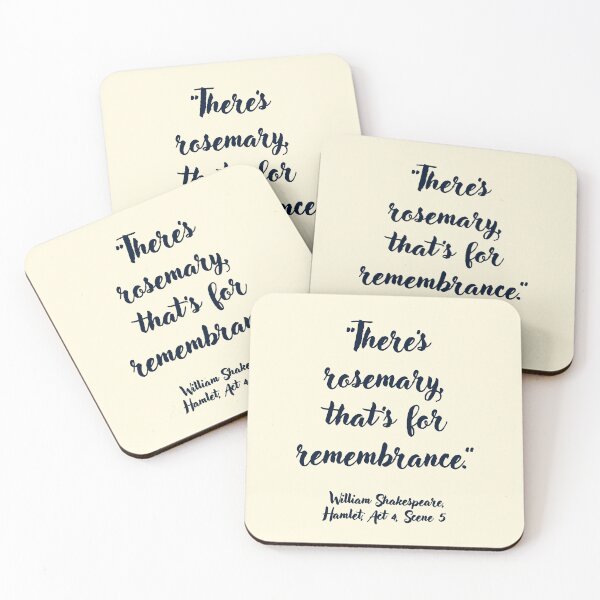 "There's
rosemary,
that's for
"There's
rosemary,
that's for
remembrance."
"There's
rosemary,
that's for
William Shake
Hamlet, Act 4
"There's
rosemary,
that's for
remembrance."
William Shakespeare,
Hamlet, Act 4, Scene 5